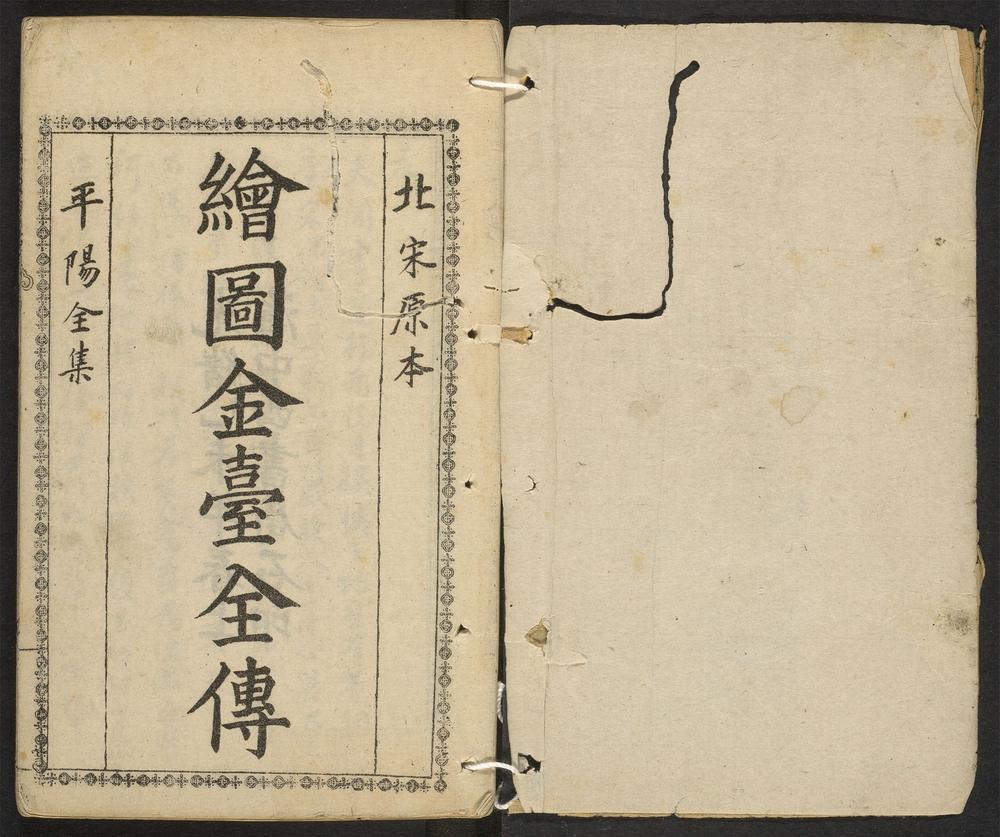 北宋原本
繪圖金臺全傳
平陽全集